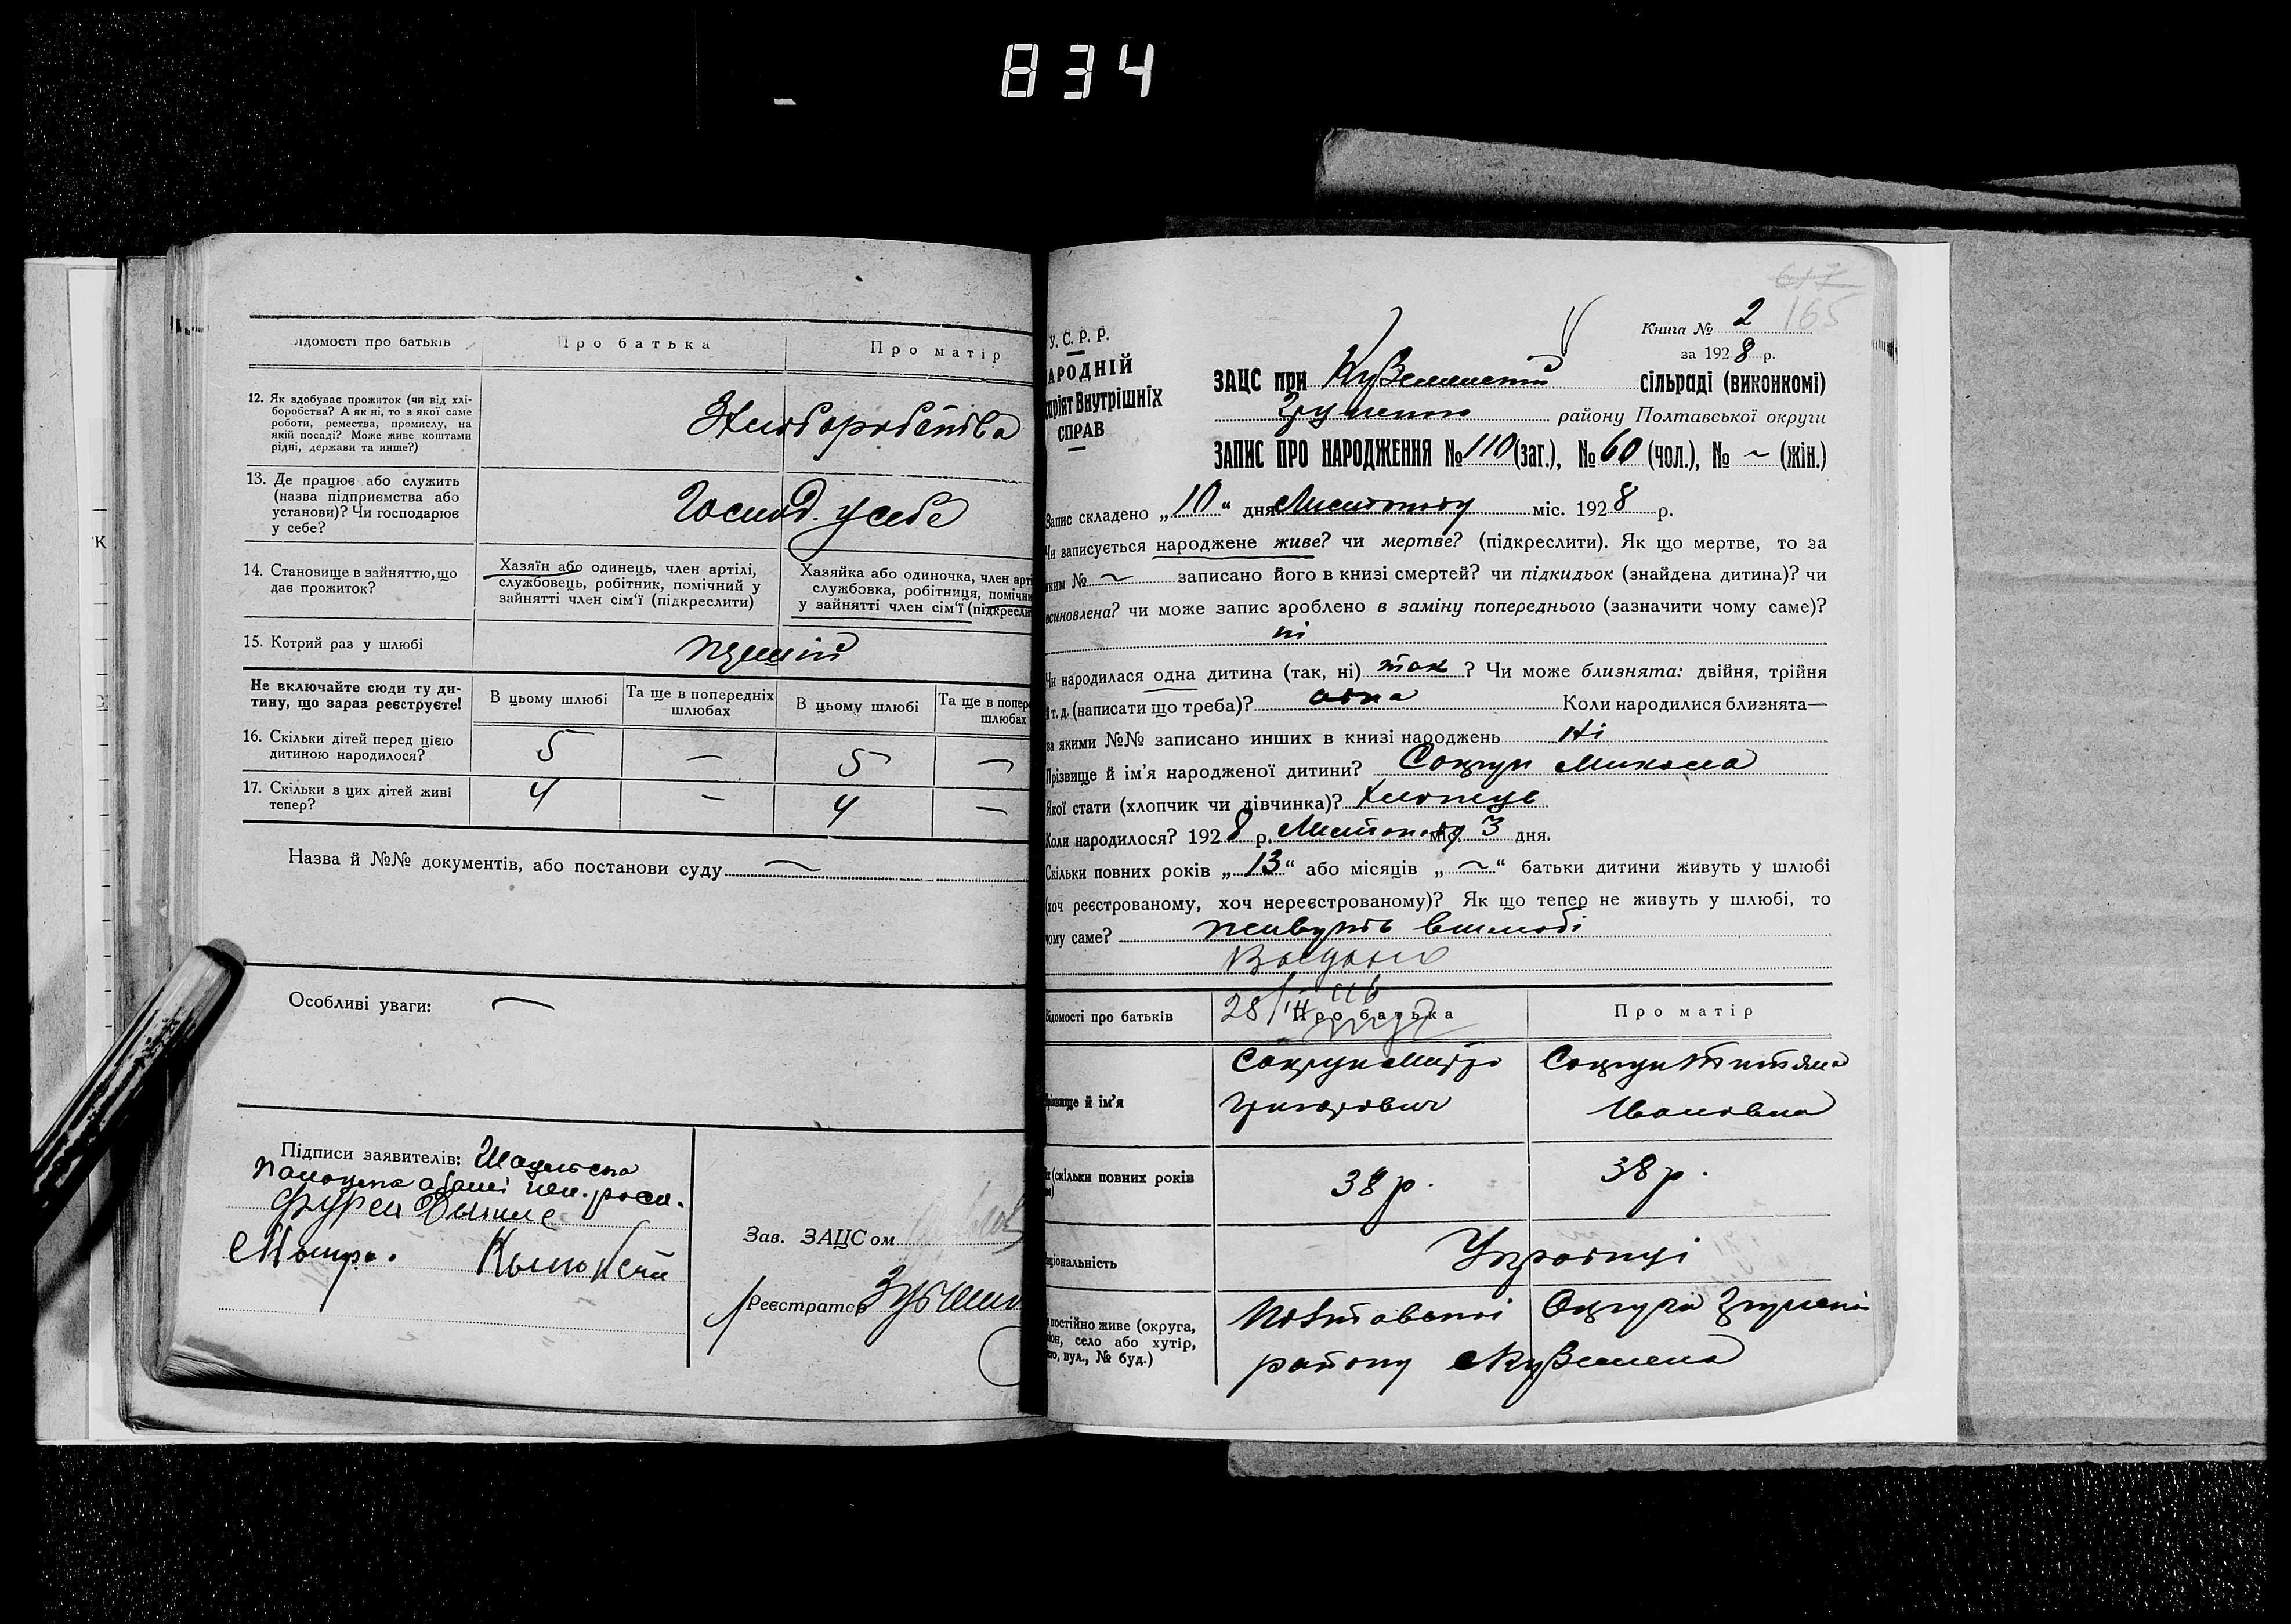 834
Відомості про батьків
Про батька
Про матір
12. Як здобуває прожиток (чи від хлі-
боробства? А як ні, то з якої саме
роботи, ремества, промислу, на
якій посаді? Може живе коштами
рідні, держави та инше?)
Хліборобство
13. Де працює або служить
(назва підприємства або
установи)? Чи господарює
у себе?
Господ. у себе
14. Становище в зайняттю, що
дає прожиток?
Хазяїн або одинець, член артілі,
службовець, робітник, помічний у
зайнятті член сім'ї (підкреслити)
Хазяйка або одиночка, член арті
службовка, робітниця, помічни
у зайнятті член сім'ї (підкресли
15. Котрий раз у шлюбі
перший
Не включайте сюди ту ди-
тину, що зараз реєструєте!
В цьому шлюбі
Та ще в попередніх
шлюбах
В цьому шлюбі
Та ще в попер
шлюбах
16. Скільки дітей перед цією
дитиною народилося?
5 — 5 —
17. Скільки з цих дітей живі
тепер?
4 - 4 —
Назва й №№ документів, або постанови суду
Особливі уваги: —
Підписи заявителів:
Зав. ЗАЦСом
Реєстратор
617
165
У. С. Р. Р.
АРОДНІЙ
аріят Внутрішніх
СПРАВ
Книга № 2
за 1928 р.
ЗАЦС при сільраді (виконкомі)
району Полтавської округи
ЗАПИС ПРО НАРОДЖЕННЯ № 110 (заг.), № 60 (чол.), № ~ (жін.)
Запис складено „10“ дня Листопаду міс. 1928 р.
Чи записується народжене живе? чи мертве? (підкреслити). Як що мертве, то за
яким № ~ записано його в книзі смертей? чи підкидьок (знайдена дитина)? чи
всиновлена? чи може запис зроблено в заміну попереднього (зазначити чому саме)?
ні
Чи народилася одна дитина (так, ні) так ? Чи може близнята: двійня, трійня
і т. д. (написати що треба)? одна Коли народилися близнята—
за якими №№ записано инших в книзі народжень ні
Прізвище й ім'я народженої дитини? Микола
Якої стати (хлопчик чи дівчинка)? Хлопець
Коли народилося? 1928 р. Листопаду міс. 3 дня.
Скільки повних років „13“ або місяців „~“ батьки дитини живуть у шлюбі
(хоч реєстрованому, хоч нереєстрованому)? Як що тепер не живуть у шлюбі, то
чому саме? живуть в шлюбі
Відомості про батьків
28/III
Про батька
Про матір
Прізвище й ім'я
Митро
Григорович
Титяна
Ивановна
(скільки повних років
38 р.
38 р.
аціональність
Українці
постійно живе (округа,
йон, село або хутір,
сто, вул., № буд.)
Полтавської Округи
району